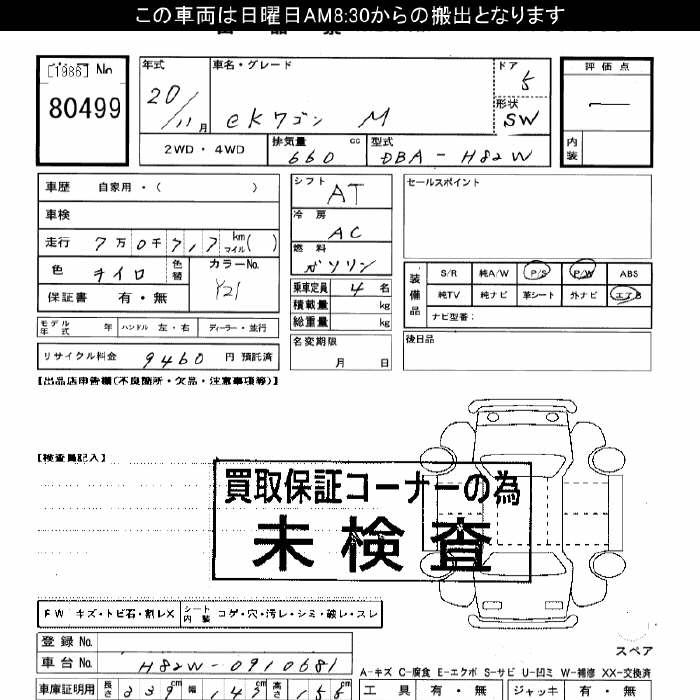 この車両は日曜日AM8:30からの搬出となります
[1986] No
80499
年式
20/11月
車名・グレード
eKワゴン M
ドア
5
形状
SW
評価点
内装
2WD・4WD
排気量 660 cc
型式 DBA-H82W
車歴 自家用・( )
車検
走行 7万0千7,7 km マイル( )
色 キイロ
色替
カラーNo.
Y21
保証書 有・無
シフト
AT
冷房
AC
燃料
ガソリン
乗車定員 4 名
積載量 kg
総重量 kg
セールスポイント
装備品
S/R 純A/W P/S P/W ABS
純TV 純ナビ 革シート 外ナビ エアB
ナビ型番:
モデル年式 年 ハンドル 左・右 ディーラー・並行
リサイクル料金 9460 円 預託済
名変期限
月 日
後日品
【出品店申告欄(不良箇所・欠品・注意事項等)】
【検査員記入】
買取保証コーナーの為
未検査
FW キズ・トビ石・割レX
シート内装 コゲ・穴・汚レ・シミ・破レ・スレ
登録 No.
車台 No. H82W-0910681
スペア
A-キズ C-腐食 E-エクボ S-サビ U-凹ミ W-補修 XX-交換済
車庫証明用 長さ 339 cm 幅 147 cm 高さ 155 cm
工具 有・無 ジャッキ 有・無